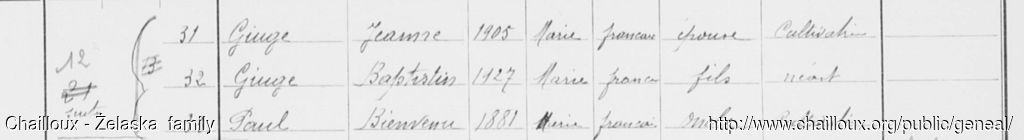 31 Giuge Jeanne 1905 Marie francaise épouse Cultivatrice
12 32 Giuge Baptistin 1927 Marie francai fils néant
Paul Bienvenu 1881 Marie francais
Chailloux - Żelaska family http://www.chailloux.org/public/geneal/